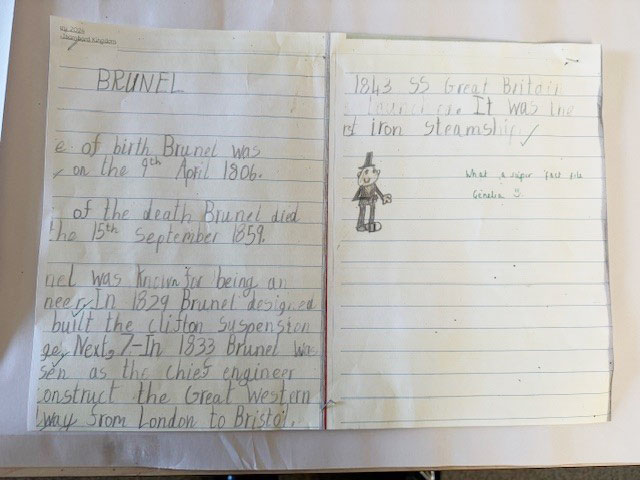 BRUNEL
e of birth Brunel was
on the 9th April 1806.
of the death Brunel died
the 15th September 1859.
nel was known for being an
neer. In 1829 Brunel designed
built the clifton suspension
ge. Next, 7-In 1833 Brunel was
sen as the chief engineer
onstruct the Great Western
way from London to Bristol.
1843 SS Great Britain
launched. It was the
st iron steamship.
What a super fact file